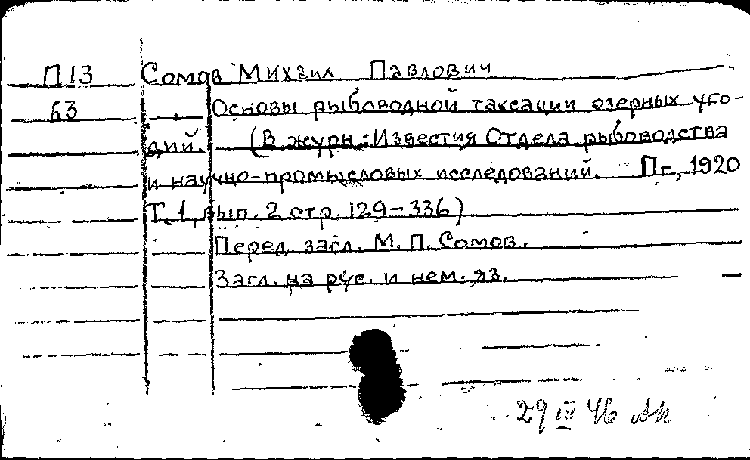 П13 Сомов Михаил Павлович
63 Основы рыбоводной таксации озерных уго-
дий. (В журн.: Известия Отдела рыбоводства
и научно-промысловых исследований. Пг., 1920
Т. 1, вып. 2 стр. 129-336)
Перед загл. М. П. Сомов.
Загл. на рус. и нем. яз.
29 IV 46